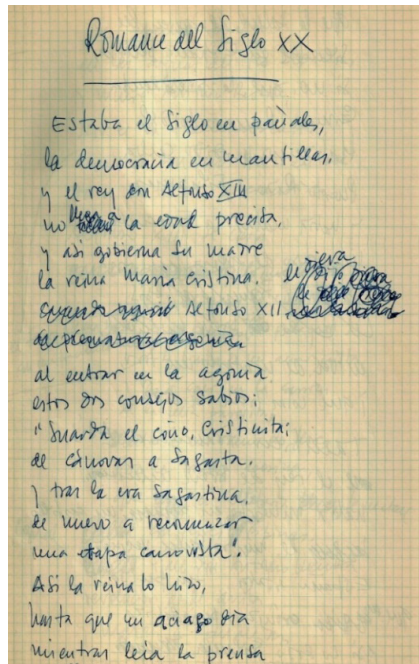 Romance del Siglo XX
Estaba el Siglo en pañales,
la democracia en mantillas,
y el rey don Alfonso XIII
no llega a la edad precisa,
y así gobierna su madre
la reina María Cristina.
Alfonso XII le diera
al entrar en la agonía
estos dos consejos sabios:
"Guarda el coño, Cristinita;
de Cánovas a Sagasta,
y tras la era Sagastina,
de nuevo a recomenzar
una etapa canovista".
Así la reina lo hizo,
hasta que un aciago día
mientras leía la prensa